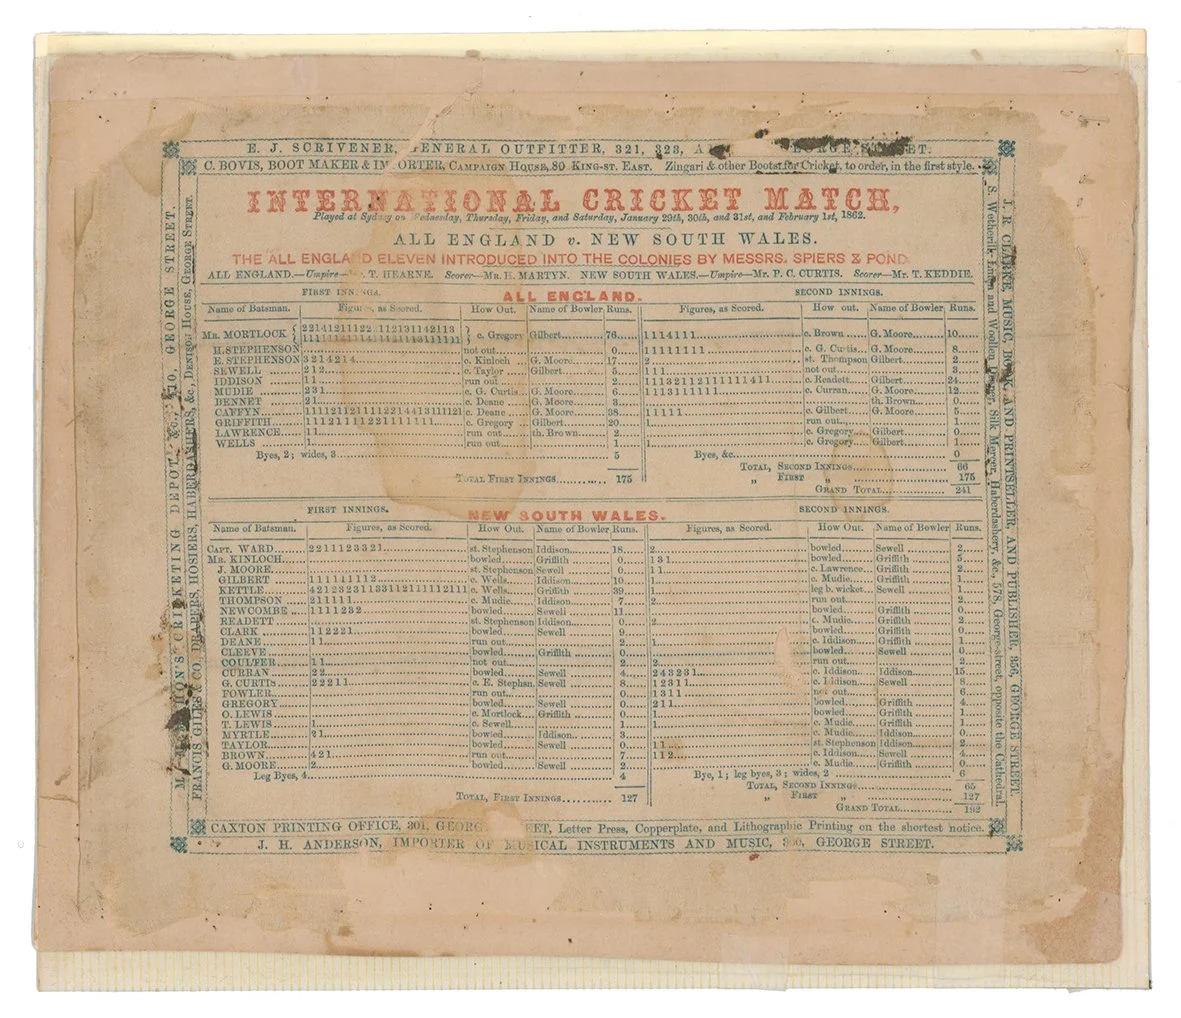 E. J. SCRIVENER, GENERAL OUTFITTER, 321, 323, STREET.
C. BOVIS, BOOT MAKER & IMPORTER, CAMPAIGN HOUSE, 80 KING-ST. EAST. Zingari & other Boots for Cricket, to order, in the first style.
INTERNATIONAL CRICKET MATCH,
Played at Sydney on Wednesday, Thursday, Friday, and Saturday, January 29th, 30th, and 31st, and February 1st, 1862.
ALL ENGLAND v. NEW SOUTH WALES.
THE ALL ENGLAND ELEVEN INTRODUCED INTO THE COLONIES BY MESSRS. SPIERS & POND.
ALL ENGLAND.—Umpire— T. HEARNE. Scorer—MR. H. MARTYN. NEW SOUTH WALES.—Umpire—MR. P. C. CURTIS. Scorer—MR. T. KEDDIE.
FIRST INNINGS. ALL ENGLAND. SECOND INNINGS.
Name of Batsman. Figures, as Scored. How Out. Name of Bowler Runs. Figures, as Scored. How out. Name of Bowler Runs.
MR. MORTLOCK c. Gregory Gilbert 76 1114111 c. Brown G. Moore 10
H. STEPHENSON not out 0 11111111 c. G. Curtis G. Moore 8
E. STEPHENSON 3214214 c. Kinloch G. Moore 17 2 st. Thompson Gilbert 2
SEWELL 212 c. Taylor Gilbert 5 111 not out 3
IDDISON 11 run out 2 11132112111111411 c. Readett Gilbert 24
MUDIE 231 c. G. Curtis G. Moore 6 1113111111 c. Curran G. Moore 12
BENNET 21 c. Deane G. Moore 3 th. Brown 0
CAFFYN 1111211211112214413111121 c. Deane G. Moore 38 11111 c. Gilbert G. Moore 5
GRIFFITH 11121111221111111 c. Gregory Gilbert 20 1 run out 1
LAWRENCE 11 run out th. Brown 2 c. Gregory Gilbert 0
WELLS 1 run out 1 1 c. Gregory Gilbert 1
Byes, 2; wides, 3 5 Byes, &c. 0
TOTAL, SECOND INNINGS 66
TOTAL FIRST INNINGS 175 „ FIRST „ 175
GRAND TOTAL 241
FIRST INNINGS. NEW SOUTH WALES. SECOND INNINGS.
Name of Batsman. Figures, as Scored. How Out. Name of Bowler Runs. Figures, as Scored. How Out. Name of Bowler Runs.
CAPT. WARD 2211123321 st. Stephenson Iddison 18 2 bowled Sewell 2
MR. KINLOCH bowled Griffith 0 131 bowled Griffith 5
J. MOORE st. Stephenson Sewell 0 11 c. Lawrence Griffith 2
GILBERT 111111112 c. Wells Iddison 10 1 c. Mudie Griffith 1
KETTLE c. Wells Griffith 39 1 leg b. wicket Sewell 1
THOMPSON 211111 c. Mudie Iddison 7 2 run out 2
NEWCOMBE 1111232 bowled Sewell 11 bowled Griffith 0
READETT st. Stephenson Iddison 0 2 c. Mudie Griffith 2
CLARK 112221 bowled Sewell 9 bowled Griffith 0
DEANE 11 run out 2 1 c. Iddison Griffith 1
CLEEVE bowled Griffith 0 bowled Sewell 0
COULTER 11 not out 2 2 run out 2
CURRAN 22 bowled Sewell 4 243231 c. Iddison Iddison 15
G. CURTIS 22211 c. E. Stephsn. Sewell 8 12311 c. Iddison Sewell 8
FOWLER run out 0 1311 not out 6
GREGORY bowled Sewell 0 211 bowled Griffith 4
O. LEWIS c. Mortlock Griffith 0 1 bowled Griffith 1
T. LEWIS 1 c. Sewell 1 1 c. Mudie Griffith 1
MYRTLE 21 bowled Iddison 3 c. Mudie Iddison 0
TAYLOR bowled Sewell 0 11 st. Stephenson Iddison 2
BROWN 421 run out 7 112 c. Iddison Sewell 4
G. MOORE 2 bowled Sewell 2 c. Mudie Griffith 0
Leg Byes, 4 4 Bye, 1; leg byes, 3; wides, 2 6
TOTAL, SECOND INNINGS 65
TOTAL, FIRST INNINGS 127 „ FIRST „ 127
GRAND TOTAL 192
CAXTON PRINTING OFFICE, 301, GEORGE STREET, Letter Press, Copperplate, and Lithographic Printing on the shortest notice.
J. H. ANDERSON, IMPORTER OF MUSICAL INSTRUMENTS AND MUSIC, GEORGE STREET.
CRICKETING DEPOT, &c., GEORGE STREET.
FRANCIS GILES & CO. DRAPERS, HOSIERS, HABERDASHERS, &c., DENISON HOUSE, GEORGE STREET.
S. Wetherill, Linen and Woollen Draper, Silk Mercer, Haberdashery, &c., 578, George-street, opposite the Cathedral.
J. R. CLARKE, MUSIC, BOOK, AND PRINTSELLER, AND PUBLISHER, 356, GEORGE STREET.